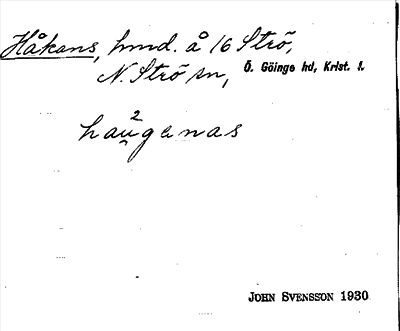 Håkans, hmd. å 16 Strö,
N. Strö sn, Ö. Göinge hd, Krist. l.
hau̯²genas
JOHN SVENSSON 1930